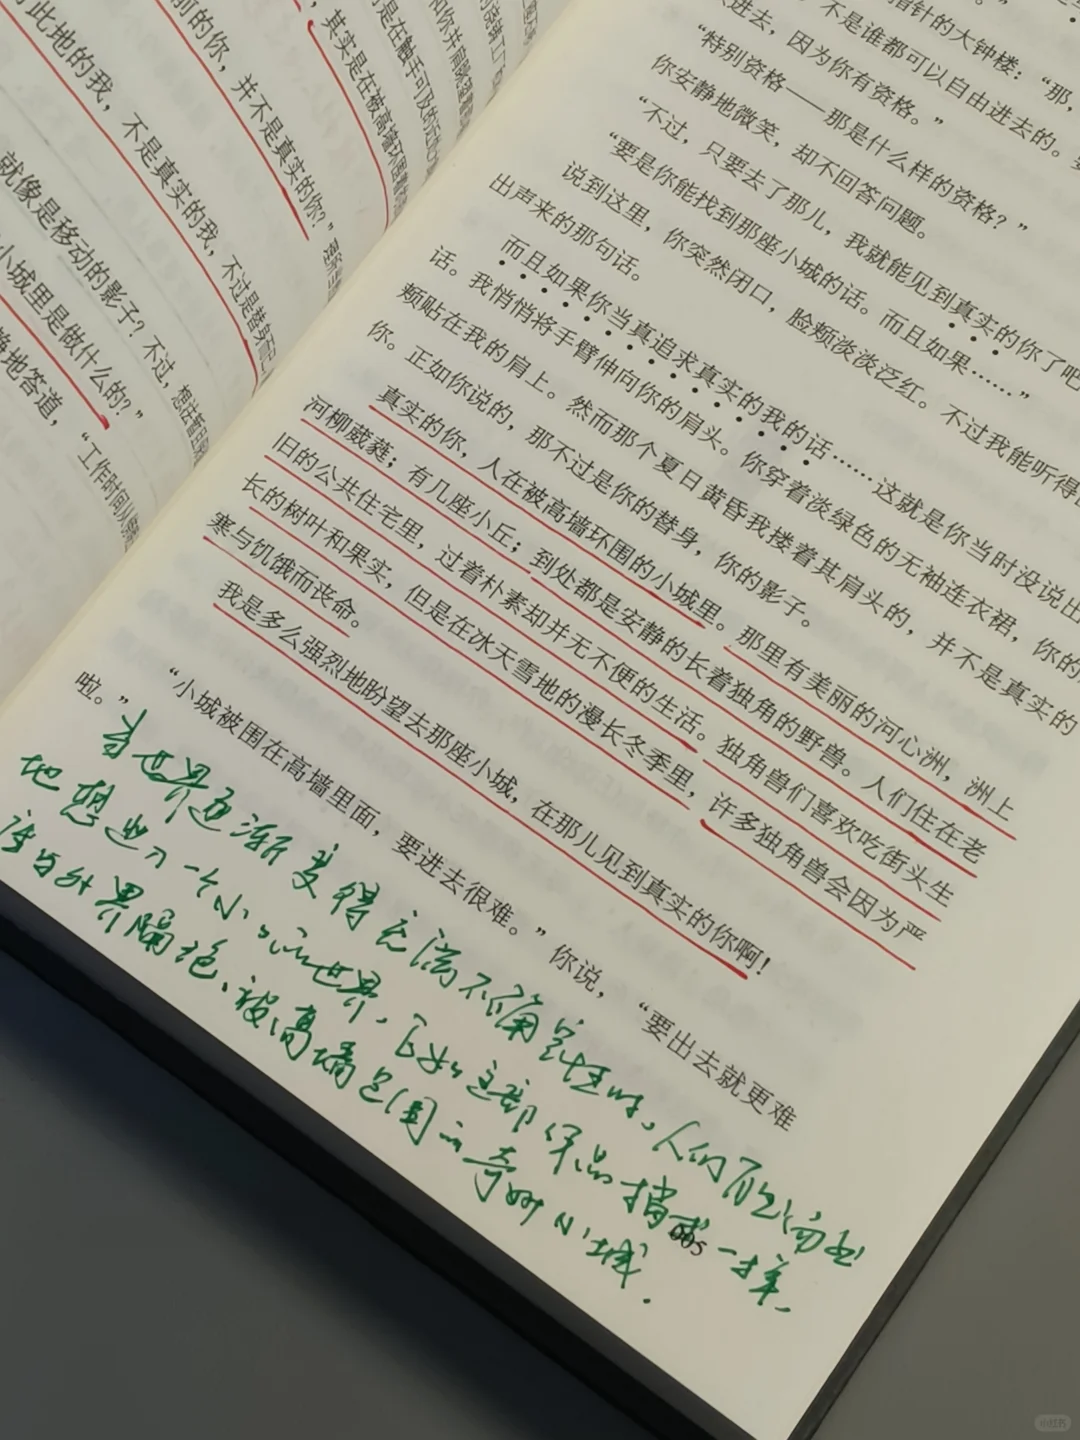 此地的我，不是真实的我，不过是替身而已
前的你，并不是真实的你？”
其实是在被高墙环围着的
就像是移动的影子？不过，
小城里是做什么的？”
静地答道，“工作时间从
指针的大钟楼：“那，
进去，因为你有资格。”
不是谁都可以自由进去的。
“特别资格——那是什么样的资格？”
你安静地微笑，却不回答问题。
“不过，只要去了那儿，我就能见到真实的你了吧
“要是你能找到那座小城的话。而且如果……”
说到这里，你突然闭口，脸颊淡淡泛红。不过我能听得
出声来的那句话。
而且如果你当真追求真实的我的话……这就是你当时没说出
话。我悄悄将手臂伸向你的肩头。你穿着淡绿色的无袖连衣裙，你的
颊贴在我的肩上。然而那个夏日黄昏我搂着其肩头的，并不是真实的
你。正如你说的，那不过是你的替身，你的影子。
真实的你，人在被高墙环围的小城里。那里有美丽的河心洲，洲上
河柳葳蕤；有几座小丘；到处都是安静的长着独角的野兽。人们住在老
旧的公共住宅里，过着朴素却并无不便的生活。独角兽们喜欢吃街头生
长的树叶和果实，但是在冰天雪地的漫长冬季里，许多独角兽会因为严
寒与饥饿而丧命。
我是多么强烈地盼望去那座小城，在那儿见到真实的你啊！
“小城被围在高墙里面，要进去很难。”你说，“要出去就更难
啦。”
当世界逐渐变得充满不确定性时，人们可能会
地想进入一个小小的世界，正如这部作品描述一样，
与外界隔绝、被高墙包围的奇妙小城.
005
小红书